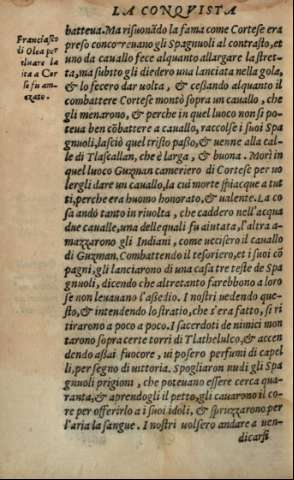 LA CONQVISTA
Franciasco
di Olea per
sluare la
ita a Cor
se fu am-
azzato.
batteua. Ma risuonãdo la fama come Cortese era
preso concorreuano gli Spagnuoli al contrasto, et
uno da cauallo fece alquanto allargare la stret-
ta, ma subito gli diedero una lanciata nella gola,
& lo fecero dar uolta, & ceßando alquanto il
combattere Cortese montò sopra un cauallo, che
gli menarono, & perche in quel luoco non si po-
teua ben cõbattere a cauallo, raccolse i suoi Spa
gnuoli, lasciò quel tristo paßo, & uenne alla cal-
le di Tlascallan, che è larga, & buona. Morì in
quel luoco Guzman cameriero di Cortese per uo
lergli dare un cauallo, la cui morte spiacque a tut
ti, perche era huomo honorato, & ualente. La co
sa andò tanto in riuolta, che caddero nell'acqua
due caualle, una delle quali fu aiutata, l'altra a-
mazzarono gli Indiani, come uccisero il cauallo
di Guzman. Combattendo il tesoriero, et i suoi cõ
pagni, gli lanciarono di una casa tre teste de Spa
gnuoli, dicendo che altretanto farebbono a loro
se non leuauano l'aßedio. I nostri uedendo que-
sto, & intendendo lo stratio, che s'era fatto, si ri
tirarono a poco a poco. I sacerdoti de nimici mon
tarono sopra certe torri di Tlathelulco, & accen
dendo assai fuocore, ui posero perfumi di capel
li, per segno di uittoria. Spogliaron nudi gli Spa
gnuoli prigioni, che poteuano essere cerca qua-
ranta, & aprendogli il petto, gli cauarono il co-
re per offerirlo a i suoi idoli, & spruzzarono per
l'aria la sangue. I nostri uolsero andare a uen-
dicarsi